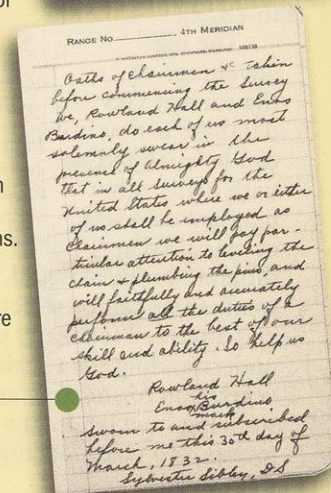 or
n
ns.
re
RANGE No. 4TH MERIDIAN
Oaths of Chainmen &c taken
before commencing the Survey
We, Rowland Hall and Enos
Burdino, do each of us most
solemnly swear in the
presence of Almighty God
that in all surveys for the
United States where we or either
of us shall be employed as
Chainmen we will pay par-
ticular attention to leveling the
chain & plumbing the pins, and
will faithfully and accurately
perform all the duties of a
chainman to the best of our
skill and ability. So help us
God.
Rowland Hall
his
Enos Burdino
mark
Sworn to and subscribed
before me this 30th day of
March, 1832.
Sylvester Sibley, D S